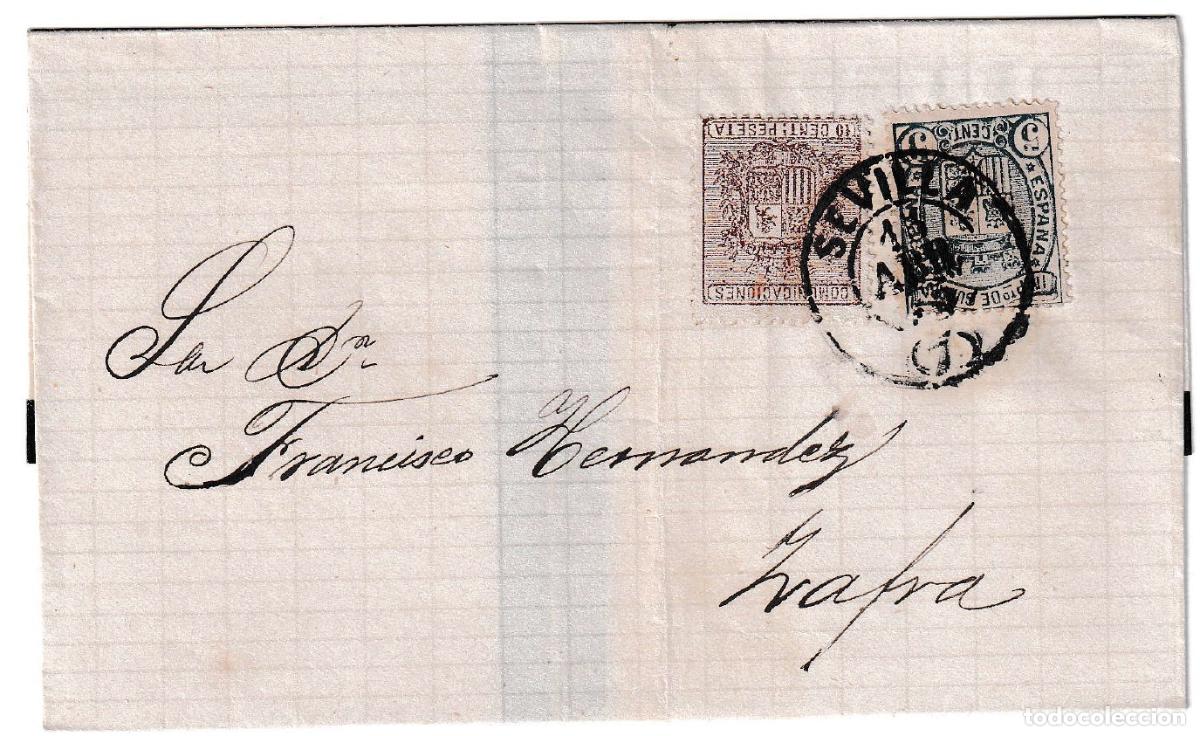 10 CENT. PESETA
COMUNICACIONES
5 CENT. 5
ESPAÑA
IMPTO DE
SEVILLA
ABR
(1)
Sor Dn
Francisco Hernandez
Zafra
todocoleccion